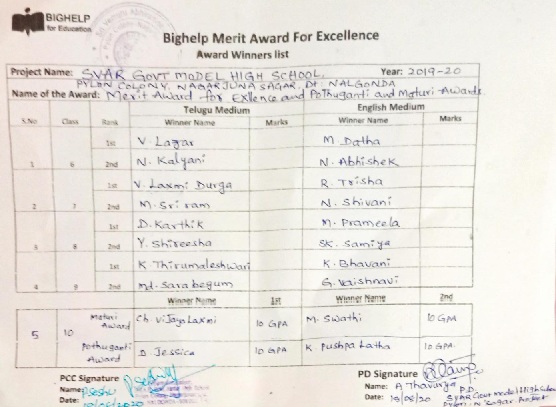 BIGHELP
for Education
Bighelp Merit Award For Excellence
Award Winners list
Project Name: SVAR GOVT MODEL HIGH SCHOOL, Year: 2019-20
PYLON COLONY, NAGARJUNA SAGAR, Dt, NALGONDA
Name of the Award: Merit Award for Exllence and Pothuganti and Moturi Awards
Telugu Medium English Medium
S.No Class Rank Winner Name Marks Winner Name Marks
1st V. Lagar M. Datha
1 6 2nd N. Kalyani N. Abhishek
1st V. Laxmi Durga R. Trisha
2 7 2nd M. Sri ram N. Shivani
1st D. Karthik M. Prameela
3 8 2nd Y. Shireesha SK. Samiya
1st K Thirumaleshwari K. Bhavani
4 9 2nd Md. Sara begum G. Vaishnavi
Winner Name 1st Winner Name 2nd
5 10 Moturi Award Ch. Vijaya Laxmi 10 GPA M. Swathi 10 GPA
Pothuganti Award D. Jessica 10 GPA K. Pushpa Latha 10 GPA
PCC Signature PD Signature
Name: Name: A Thavurya P.D.
Date: Date: SVAR Govt model High School